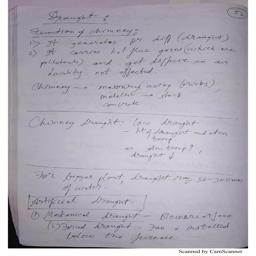 Draught :
Function of chimney :
1) It generates pr diff (draught)
2) It carries hot flue gases (which are
pollutants) and get diffuse in air
locality not affected.
Chimney → masonry
metallic →
concrete
Chimney Draught - low draught
ht of draught and atm
temp
draught ↓
For bigger plant, draught may 50-
of water
Artificial Draught
(1) Mechanical draught -
draught - Fan is installed
before the furnace
Scanned by CamScanner